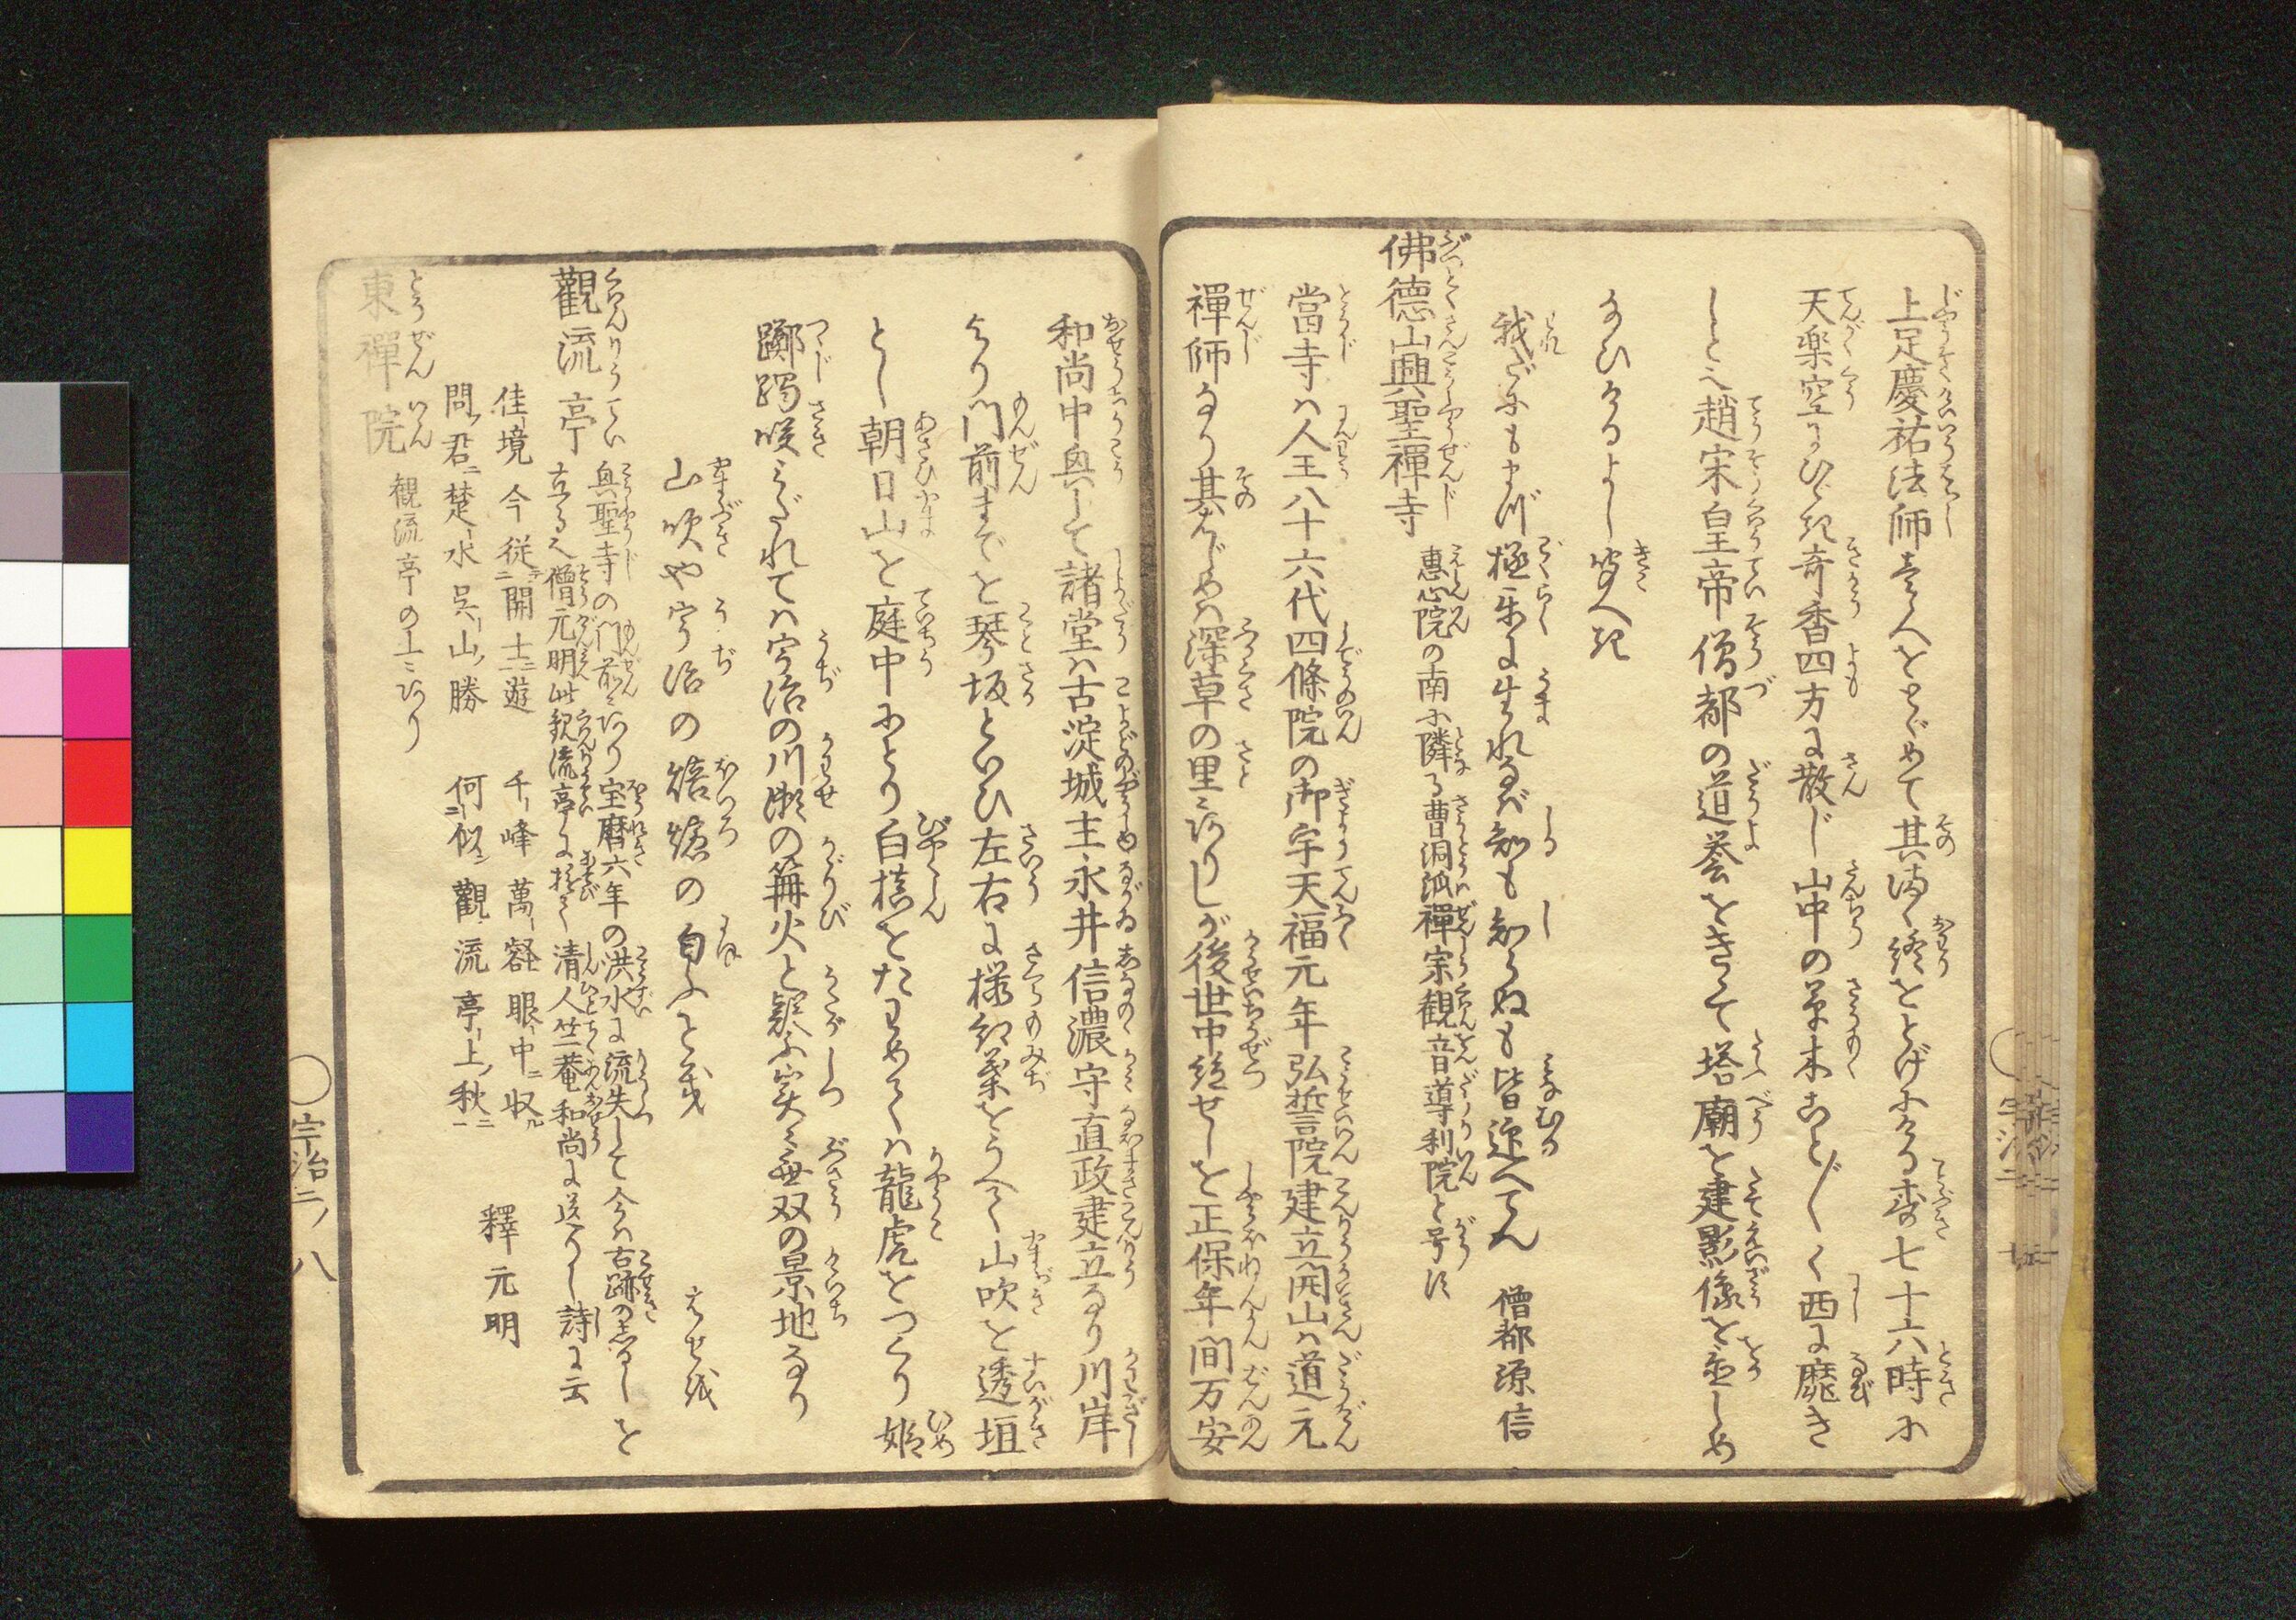 上足慶祐法師皆人をとゞめて其陣に終をとげける春秋七十六時に
天楽空にひゞき奇香四方に散じ山中の草木こと〴〵く西に靡き
しとぞ趙宋皇帝僧都の道誉をきゝて塔廟を建影像を安しめ
給ひけるよし聞へき
我だにもまづ極楽に生れなば知も知らぬも皆迎へてん 僧都源信
佛徳山興聖禪寺 惠心院の南に隣る曹洞派禪宗観音導利院と号す
當寺ハ人王八十六代四條院の御宇天福元年弘誓院建立開山ハ道元
禪師なり其はじめハ深草の里にありしが後世中絶せしを正保年間万安
和尚中興して諸堂ハ古淀城主永井信濃守直政建立なり川岸
より門前までを琴坂といひ左右に櫻紅葉をうへて山吹を透垣
とし朝日山を庭中にとり白槙をたわめてハ龍虎をつくり姫
躑躅咲みだれてハ宇治の川瀬の篝火と疑ふ実に無双の景地なり
山吹や宇治の焙爐の匂ふとき はせを
觀流亭 興聖寺の門前にあり宝暦六年の洪水に流失して今ハ古跡のしるしを
立るミ僧元明此観流亭に遊て清人竺菴和尚に送りし詩に云
佳境今従開士遊 千峰萬壑眼中収
問君楚水呉山勝 何似觀流亭上秋 釋元明
東禪院 観流亭の上にあり
宇治二ノ八